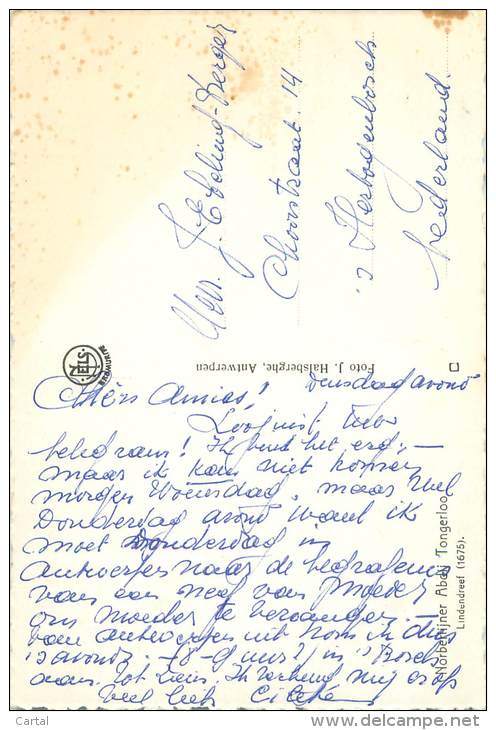 Mevr. J. Ebeling-Berger
Choorstraat. 14
's Hertogenbosch
Nederland.
NELS
Foto J. Halsberghe, Antwerpen
Norbertijner Abdij Tongerloo
Lindendreef (1675).
Chers Amies! Dinsdag avond
Zoo juist, Uw
telegram!
maar ik kan niet komen
morgen Woensdag, maar wel
Donderdag avond want ik
moet Donderdag in
Antwerpen naar de begrafenis
van een neef van moeder
om moeder te vervangen.
van Antwerpen uit kom ik dus
's avonds - 8-9 uur?) in 's Bosch
aan. Tot ziens. Ik verheug mij erop
veel liefs
Cartal
www.delcampe.net